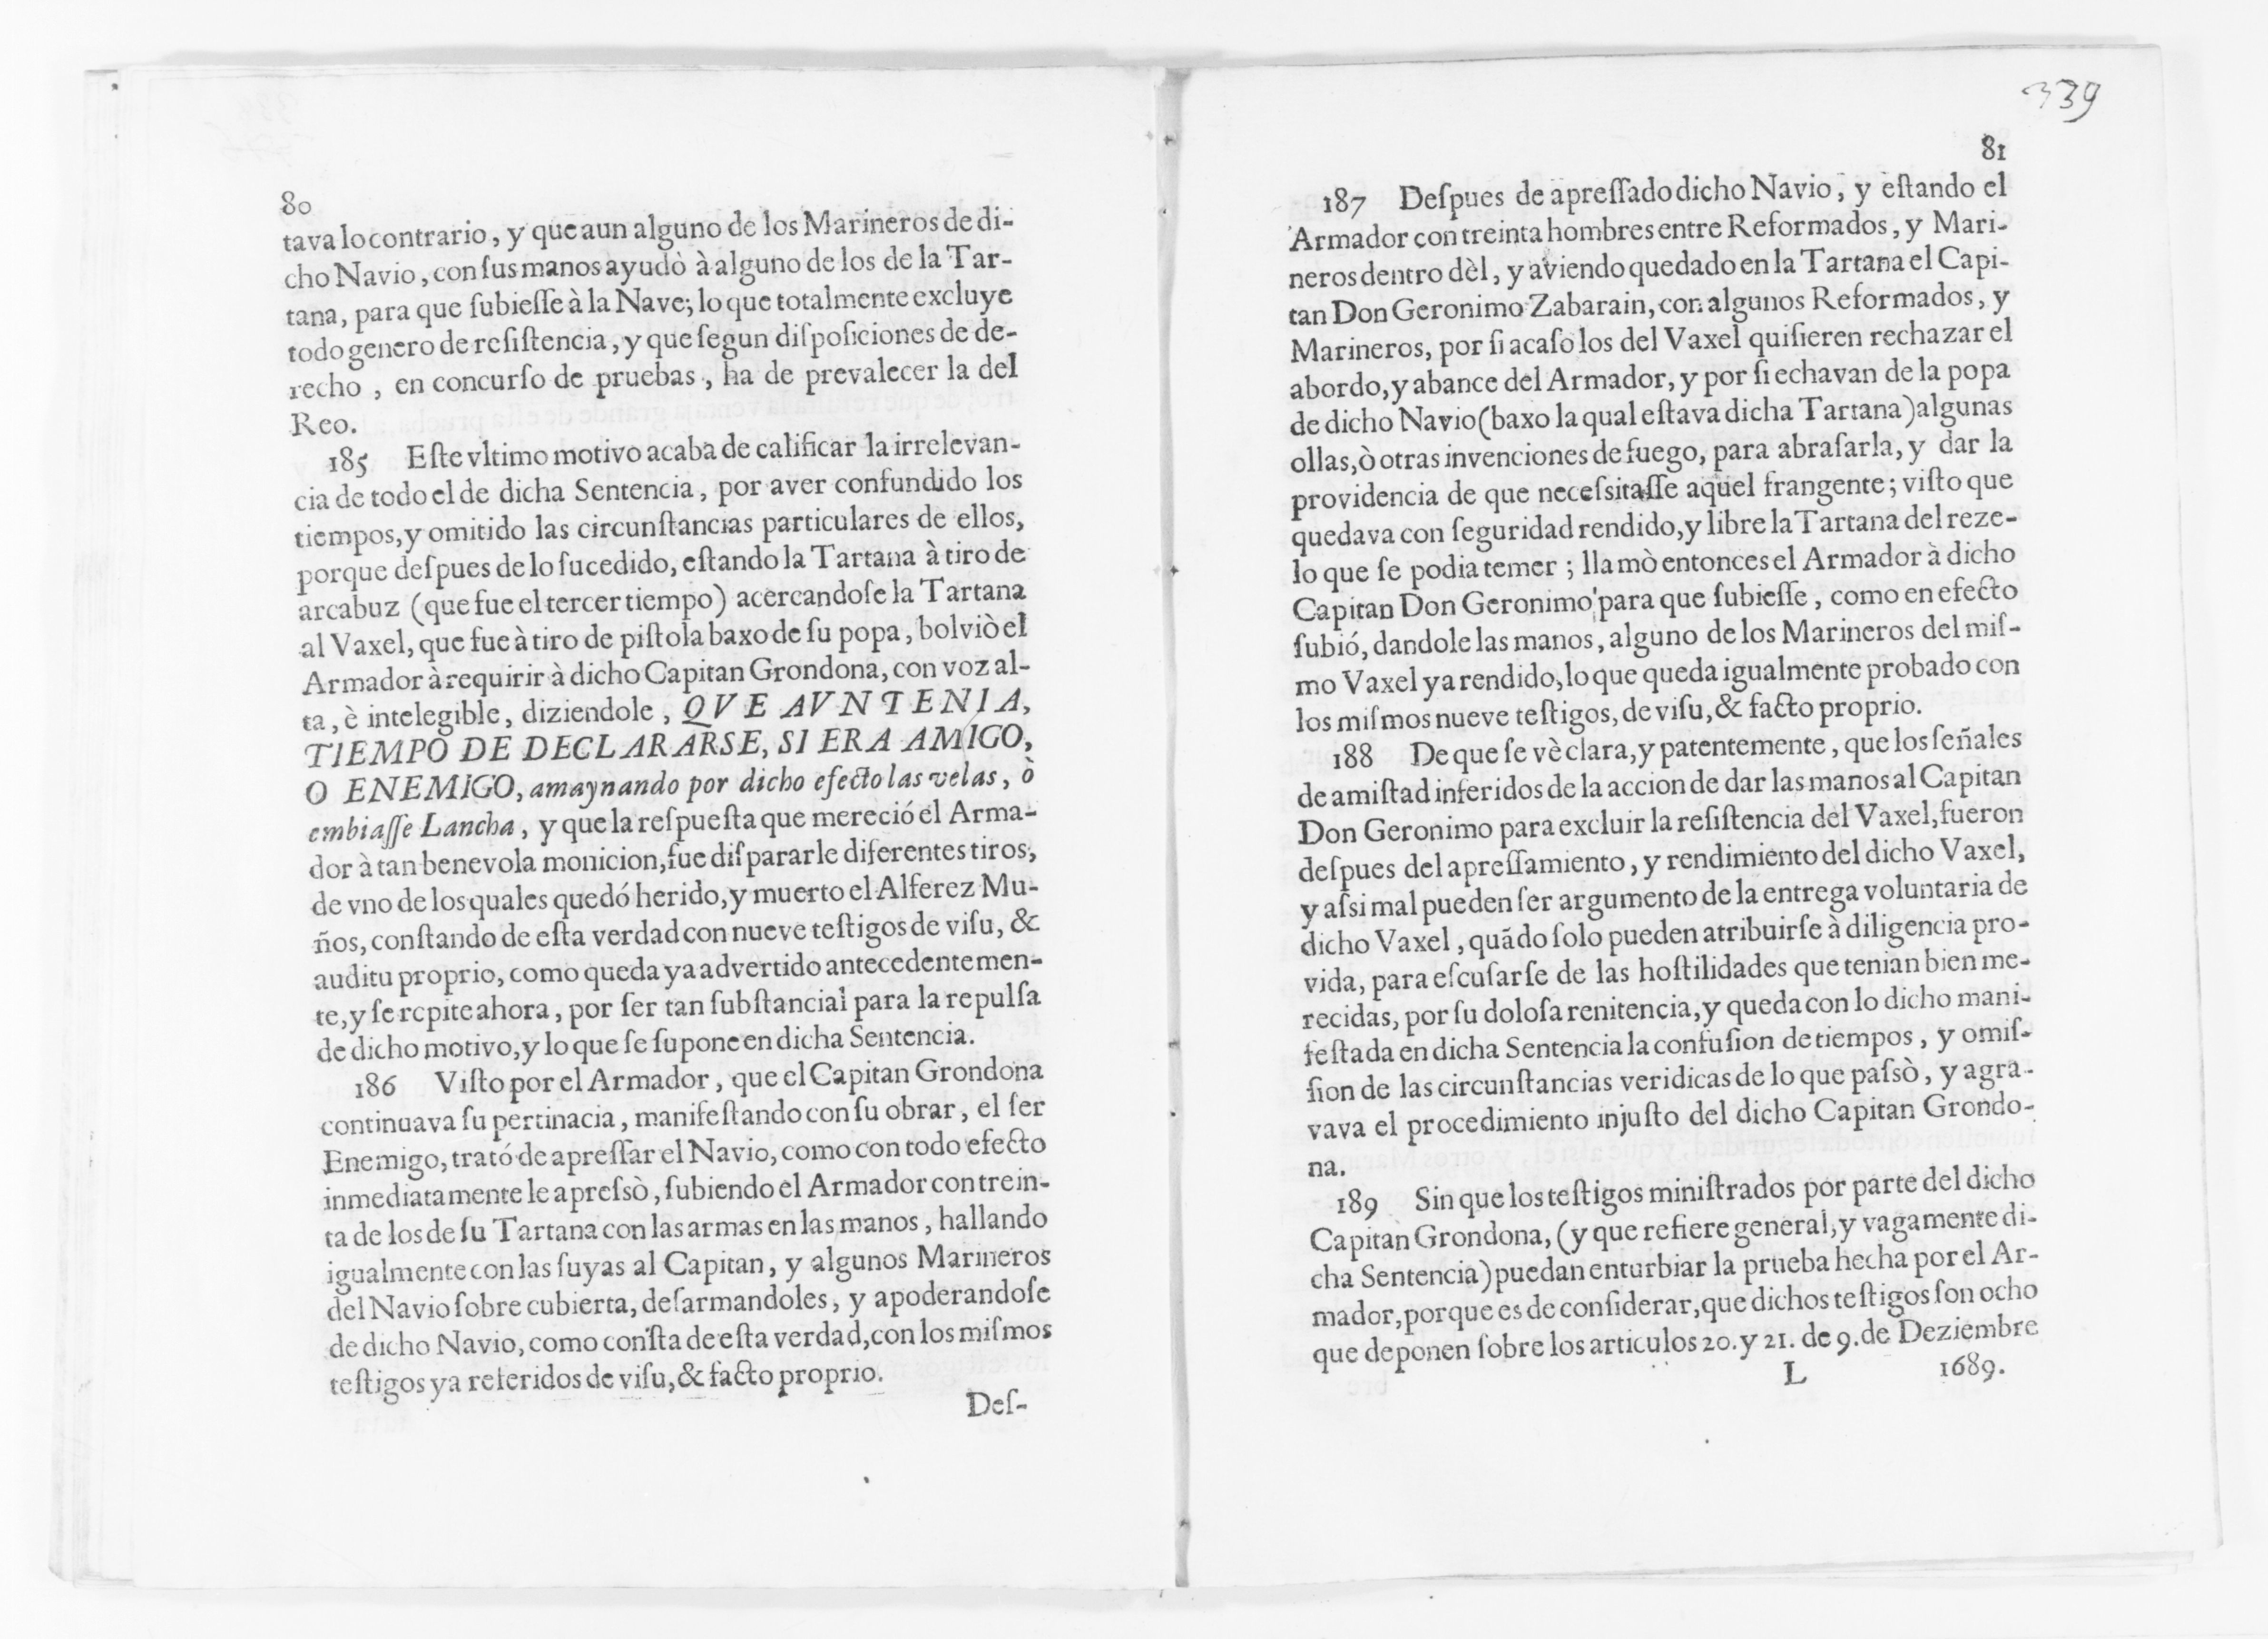 80
tava lo contrario, y que aun alguno de los Marineros de di-
cho Navio, con ſus manos ayudò à alguno de los de la Tar-
tana, para que ſubieſſe à la Nave; lo que totalmente excluye
todo genero de reſiſtencia, y que ſegun diſpoſiciones de de-
recho, en concurſo de pruebas, ha de prevalecer la del
Reo.
185 Eſte vltimo motivo acaba de calificar la irrelevan-
cia de todo el de dicha Sentencia, por aver confundido los
tiempos, y omitido las circunſtancias particulares de ellos,
porque deſpues de lo ſucedido, eſtando la Tartana à tiro de
arcabuz (que fue el tercer tiempo) acercandoſe la Tartana
al Vaxel, que fue à tiro de piſtola baxo de ſu popa, bolviò el
Armador à requirir à dicho Capitan Grondona, con voz al-
ta, è intelegible, diziendole, QVE AVN TENIA,
TIEMPO DE DECLARARSE, SI ERA AMIGO,
O ENEMIGO, amaynando por dicho efecto las velas, ò
embiaſſe Lancha, y que la reſpueſta que mereció el Arma-
dor à tan benevola monicion, fue diſpararle diferentes tiros,
de vno de los quales quedó herido, y muerto el Alferez Mu-
ños, conſtando de eſta verdad con nueve teſtigos de viſu, &
auditu proprio, como queda ya advertido antecedentemen-
te, y ſe repite ahora, por ſer tan ſubſtancial para la repulſa
de dicho motivo, y lo que ſe ſupone en dicha Sentencia.
186 Viſto por el Armador, que el Capitan Grondona
continuava ſu pertinacia, manifeſtando con ſu obrar, el ſer
Enemigo, trató de apreſſar el Navio, como con todo efecto
inmediatamente le apreſsò, ſubiendo el Armador con trein-
ta de los de ſu Tartana con las armas en las manos, hallando
igualmente con las ſuyas al Capitan, y algunos Marineros
del Navio ſobre cubierta, deſarmandoles, y apoderandoſe
de dicho Navio, como conſta de eſta verdad, con los miſmos
teſtigos ya referidos de viſu, & facto proprio.
Deſ-
339
81
187 Deſpues de apreſſado dicho Navio, y eſtando el
Armador con treinta hombres entre Reformados, y Mari-
neros dentro dèl, y aviendo quedado en la Tartana el Capi-
tan Don Geronimo Zabarain, con algunos Reformados, y
Marineros, por ſi acaſo los del Vaxel quiſieren rechazar el
abordo, y abance del Armador, y por ſi echavan de la popa
de dicho Navio (baxo la qual eſtava dicha Tartana) algunas
ollas, ò otras invenciones de fuego, para abraſarla, y dar la
providencia de que neceſsitaſſe aquel frangente; viſto que
quedava con ſeguridad rendido, y libre la Tartana del reze-
lo que ſe podia temer; llamò entonces el Armador à dicho
Capitan Don Geronimo para que ſubieſſe, como en efecto
ſubió, dandole las manos, alguno de los Marineros del miſ-
mo Vaxel ya rendido, lo que queda igualmente probado con
los miſmos nueve teſtigos, de viſu, & facto proprio.
188 De que ſe vè clara, y patentemente, que los ſeñales
de amiſtad inferidos de la accion de dar las manos al Capitan
Don Geronimo para excluir la reſiſtencia del Vaxel, fueron
deſpues del apreſſamiento, y rendimiento del dicho Vaxel,
y aſsi mal pueden ſer argumento de la entrega voluntaria de
dicho Vaxel, quãdo ſolo pueden atribuirſe à diligencia pro-
vida, para eſcuſarſe de las hoſtilidades que tenian bien me-
recidas, por ſu doloſa renitencia, y queda con lo dicho mani-
feſtada en dicha Sentencia la confuſion de tiempos, y omiſ-
ſion de las circunſtancias veridicas de lo que paſsò, y agra-
vava el procedimiento injuſto del dicho Capitan Grondo-
na.
189 Sin que los teſtigos miniſtrados por parte del dicho
Capitàn Grondona, (y que refiere general, y vagamente di-
cha Sentencia) puedan enturbiar la prueba hecha por el Ar-
mador, porque es de conſiderar, que dichos teſtigos ſon ocho
que deponen ſobre los articulos 20. y 21. de 9. de Deziembre
L 1689.